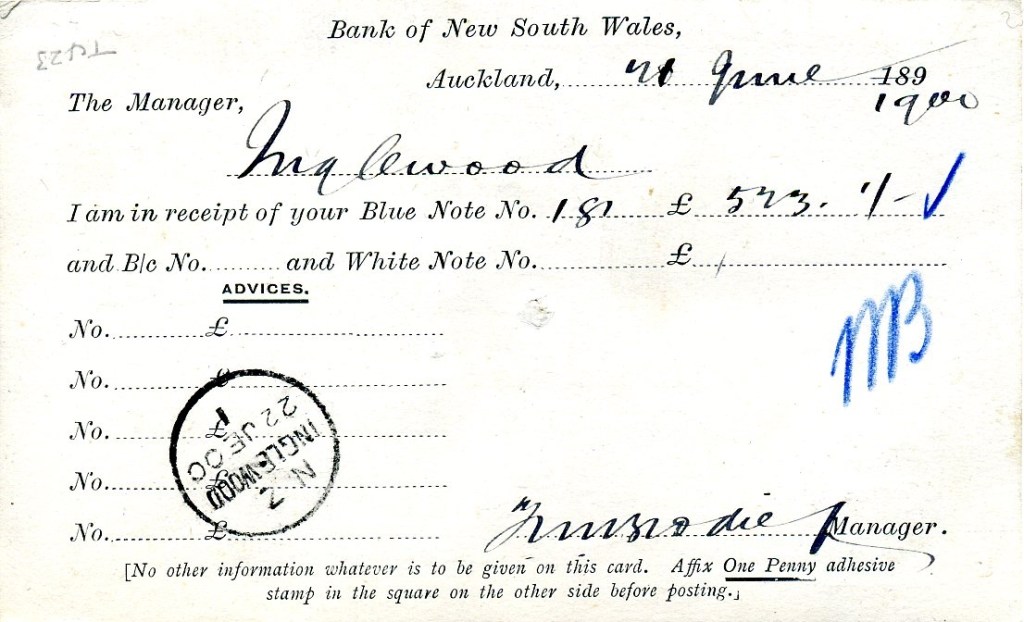 Bank of New South Wales,
Auckland, 21 June 189
1900
The Manager,
Inglewood
I am in receipt of your Blue Note No. 181 £ 523. "/-
and B/c No. and White Note No. £
ADVICES.
No. £
No. £
No. £
No. £
No. £
1
22 JE 00
INGLEWOOD
N Z
Brodie Manager.
[No other information whatever is to be given on this card. Affix One Penny adhesive
stamp in the square on the other side before posting.]